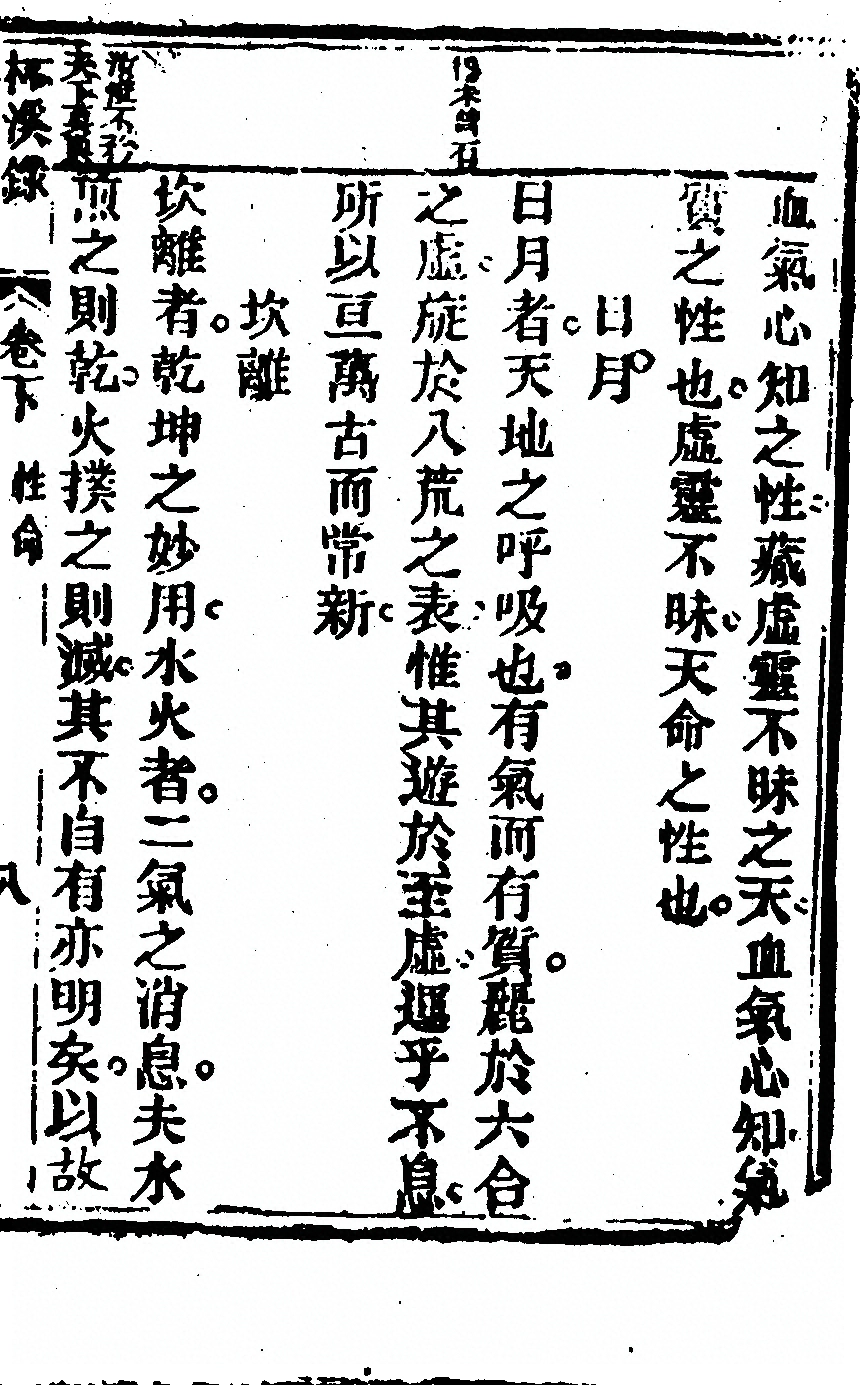 血氣心知之性藏虛靈不昧之天血氣心知氣
質之性也虛靈不昧天命之性也
日月
日月者天地之呼吸也有氣而有質麗於六合
之虛旋於八荒之表惟其遊於至虛運乎不息
所以亘萬古而常新
坎離
坎離者乾坤之妙用水火者二氣之消息夫水
煎之則乾火撲之則滅其不自有亦明矣以故
未曾有
不
天下
溪錄
卷下
性命
八